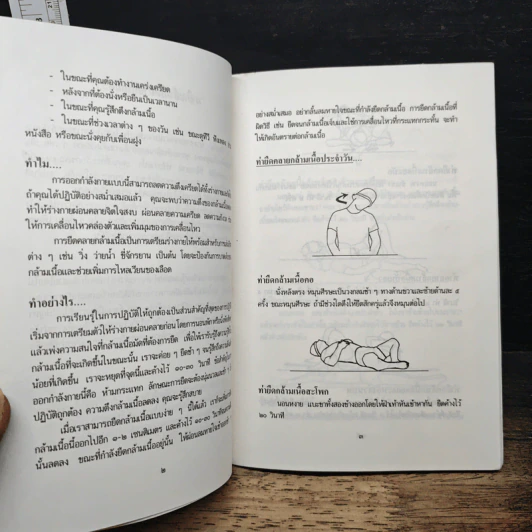 - ในขณะที่คุณต้องทำงานเคร่งเครียด
- หลังจากที่ต้องนั่งหรือยืนเป็นเวลานาน
- ในขณะที่คุณรู้สึกตึงกล้ามเนื้อ
- ในขณะที่ช่วงเวลาต่าง ๆ ของวัน เช่น ขณะดูทีวี ฟังเพลง อ่าน
หนังสือ หรือขณะนั่งคุยกับเพื่อนฝูง
ทำไม....
การออกกำลังกายแบบนี้สามารถลดความตึงเครียดได้
ถ้าคุณได้ปฏิบัติอย่างสม่ำเสมอแล้ว คุณจะพบว่าความตึงของกล้ามเนื้อ
ทำให้ร่างกายผ่อนคลายจิตใจสงบ ผ่อนคลายความเครียด
ให้การเคลื่อนไหวคล่องตัวและเพิ่มมุมของการเคลื่อนไหว
การยืดคลายกล้ามเนื้อเป็นการเตรียมร่างกายให้พร้อมสำหรับ
ต่าง ๆ เช่น วิ่ง ว่ายน้ำ ขี่จักรยาน เป็นต้น โดยจะป้องกันการ
กล้ามเนื้อและช่วยเพิ่มการไหลเวียนของเลือด
ทำอย่างไร....
การเรียนรู้ในการปฏิบัติให้ถูกต้องเป็นส่วนสำคัญที่สุดของการ
เริ่มจากการเตรียมตัวให้ร่างกายผ่อนคลายก่อน โดยการนอนพัก
แล้วเพ่งความสนใจที่กล้ามเนื้อมัดที่ต้องการยืด
กล้ามเนื้อที่จะเกิดขึ้นในขณะนั้น เราจะค่อย ๆ ยืดช้า ๆ จนรู้สึกถึง
น้อยที่เกิดขึ้น เราจะหยุดที่จุดนี้และค้างไว้ ๑๐-๓๐ วินาที
ออกกำลังกายนี้คือ ห้ามกระแทก ลักษณะการยืดจะต้องนุ่มนวล
ปฏิบัติถูกต้อง ความตึงกล้ามเนื้อลดลง คุณจะรู้สึกสบาย
เมื่อเราสามารถยืดกล้ามเนื้อแบบง่าย ๆ นี้ได้แล้ว
กล้ามเนื้อนี้ออกไปอีก ๑-๒ เซนติเมตร และค้างไว้ ๑๐-๓๐ วินาที
นั้นลดลง ขณะที่กำลังยืดกล้ามเนื้ออยู่นั้น ให้ผ่อนลมหายใจ
๒
อย่างสม่ำเสมอ อย่ากลั้นลมหายใจขณะที่กำลังยืดกล้ามเนื้อ การยืดกล้ามเนื้อที่
ผิดวิธี เช่น ยืดจนกล้ามเนื้อเจ็บและใช้การเคลื่อนไหวที่กระแทกกระทั้น จะทำ
ให้เกิดอันตรายต่อกล้ามเนื้อ
ท่ายืดคลายกล้ามเนื้อประจำวัน....
ท่ายืดกล้ามเนื้อคอ
นั่งหลังตรง หมุนศีรษะเป็นวงกลมช้า ๆ ทางด้านขวาและซ้ายด้านละ ๕
ครั้ง ขณะหมุนศีรษะ ถ้ามีช่วงใดตึงให้ยืดสักครู่แล้วจึงหมุนต่อไป
ท่ายืดกล้ามเนื้อสะโพก
นอนหงาย แบะขาทั้งสองข้างออกโดยให้ฝ่าเท้าหันเข้าหากัน ยืดค้างไว้
๒๐ วินาที
๓